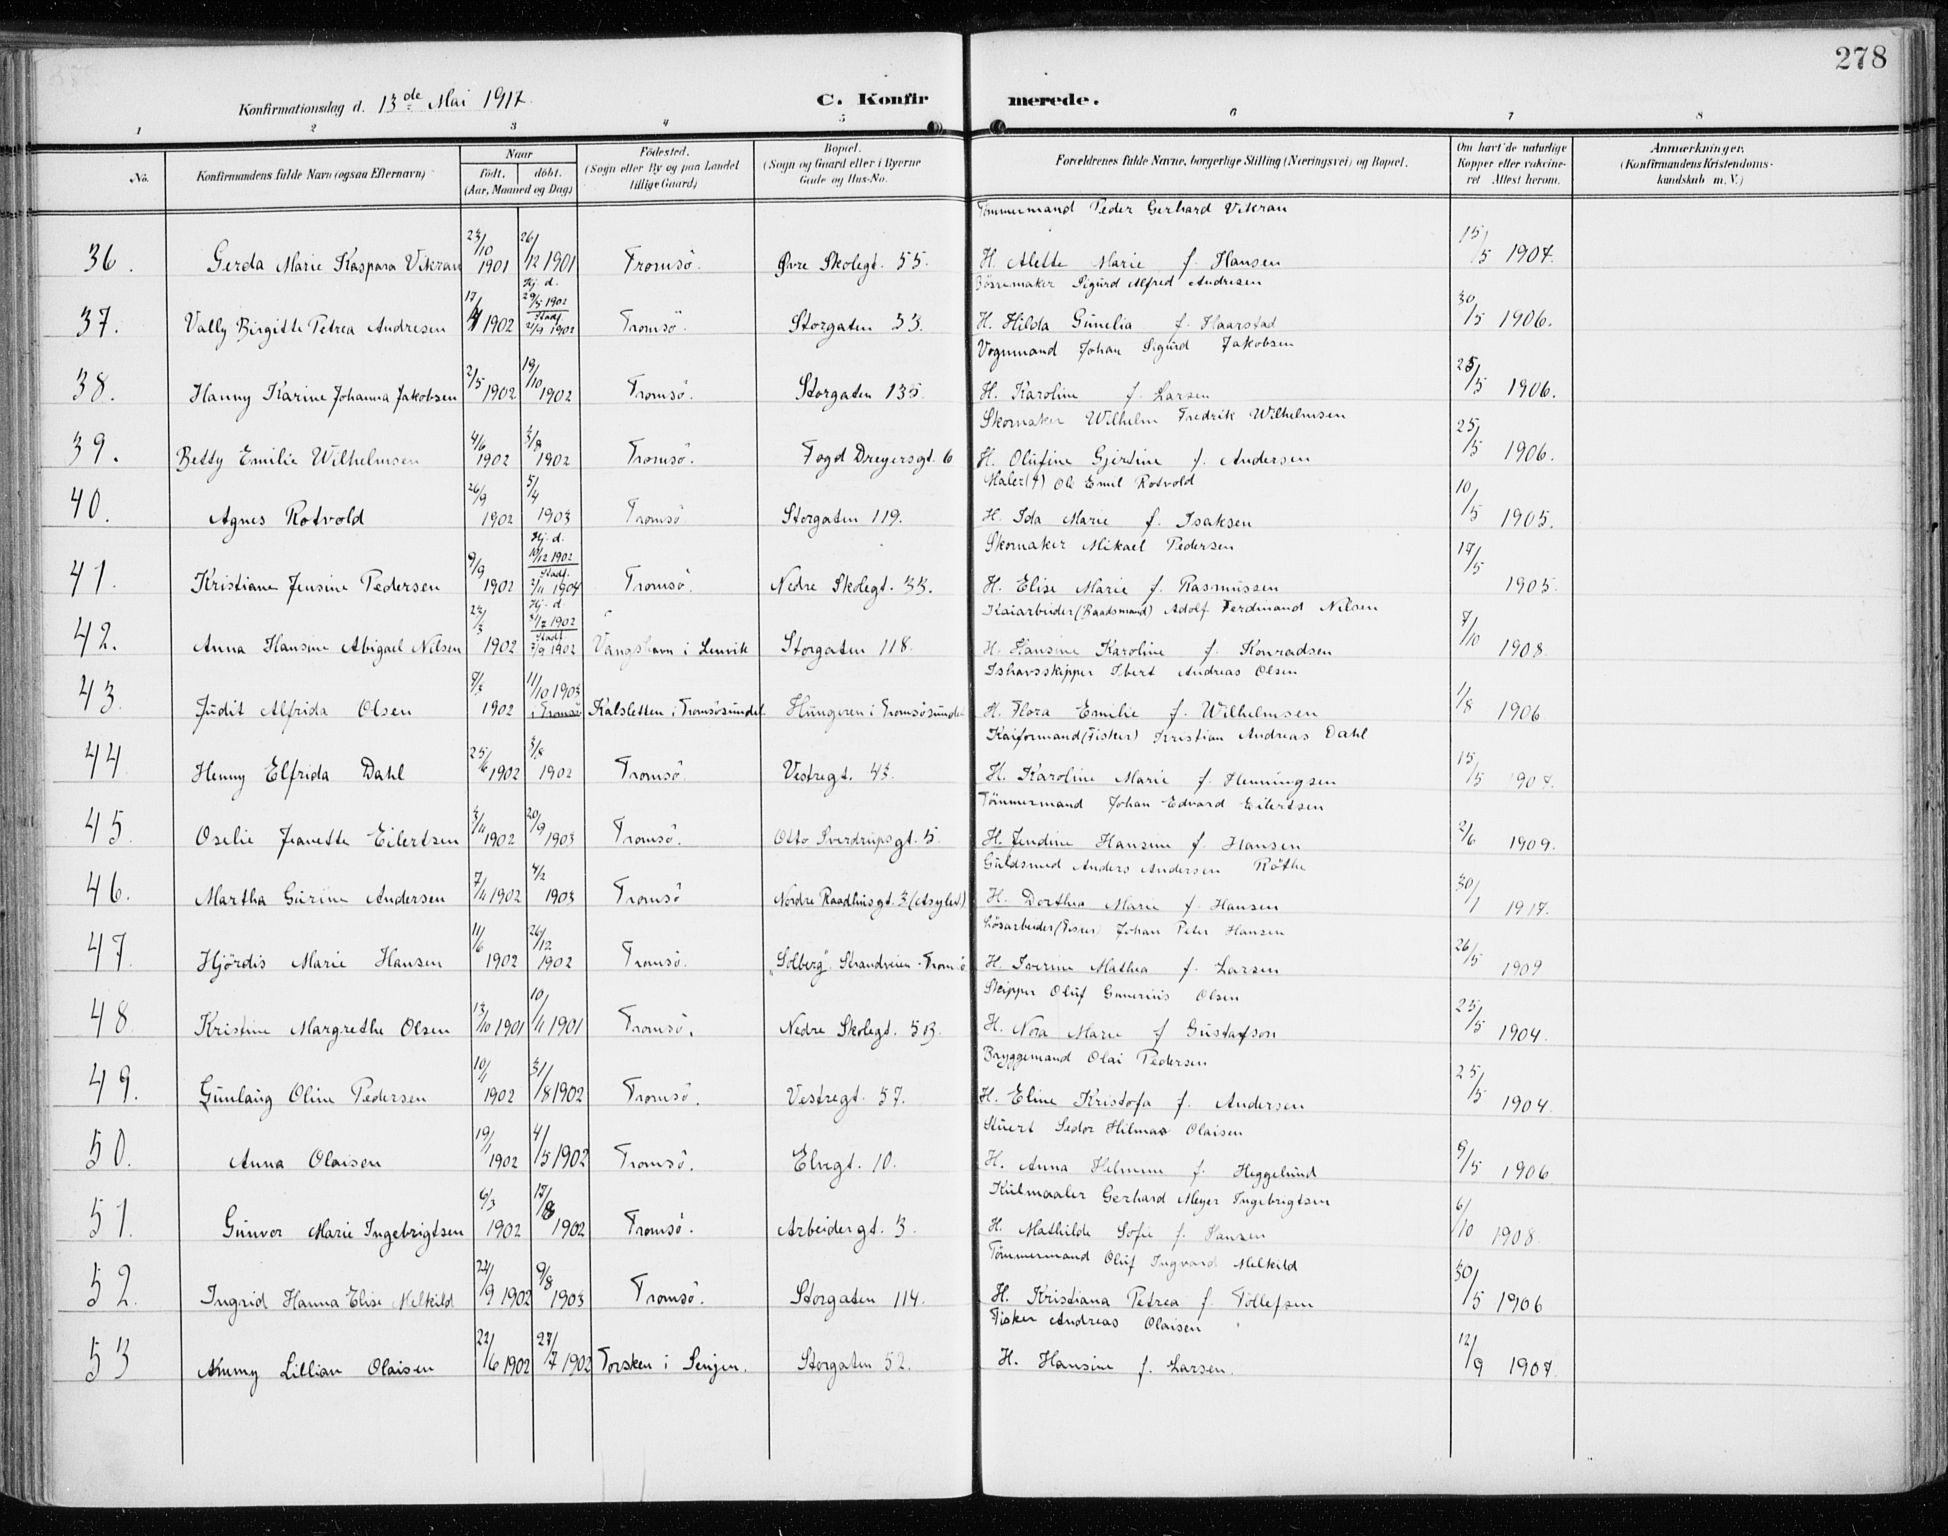 278
Konfirmationsdag d. 13de Mai 1917. C. Konfirmerede.
1 2 3 4 5 6 7 8
No. Konfirmandens fulde Navn (ogsaa Efternavn) Naar født, døbt. (Aar, Maaned og Dag) Fødested. (Sogn eller By og paa Landet tillige Gaard) Bopæl. (Sogn og Gaard eller i Byerne Gade og Hus-No. Forældrenes fulde Navne, borgerlige Stilling (Næringsvei) og Bopæl. Om havt de naturlige Kopper eller vakcineret Attest herom. Anmærkninger. (Konfirmandens Kristendomskundskab m. V.)
Tømmermand Peder Gerhard Vikran
36. Gerda Marie Kaspara Vikran 23/10 1901 26/12 1901 Tromsö. Øvre Skolegt. 55. H. Alette Marie f. Hansen 15/5 1907.
Bössemaker Sigurd Alfred Andresen
37. Vally Birgitte Petrea Andresen 17/4 1902 Hj. d. 29/5 1902 Stadf. 21/9 1902 Tromsö Storgaten 33. H. Hilda Gunelia f. Haarstad 30/5 1906.
Vognmand Johan Sigurd Jakobsen
38. Hanny Karine Johanna Jakobsen 2/5 1902 19/10 1902 Tromsö. Storgaten 135. H. Karoline f. Larsen 25/5 1906.
Skomaker Wilhelm Fredrik Wilhelmsen
39. Betty Emilie Wilhelmsen 4/6 1902 3/8 1902 Tromsö. Fogd Dreyersgt. 6 H. Olufine Gjertine f. Andersen 25/5 1906.
Maler (†) Ole Emil Rotvold
40. Agnes Rotvold 26/9 1902 5/4 1903 Tromsö Storgaten 119. H. Ida Marie f. Isaksen 10/5 1905.
Skomaker Mikael Pedersen
41. Kristiane Jensine Pedersen 9/9 1902 Hj. d. 10/12 1902 Stadf. 2/11 1904 Tromsö. Nedre Skolegt. 33. H. Elise Marie f. Rasmussen 17/5 1905.
Kaiarbeider (Baadsmand) Adolf Ferdinand Nilsen
42. Anna Hansine Abigael Nilsen 23/3 1902 Hj. d. /7 1902 Stadf. 7/9 1902 Vangshavn i Lenvik Storgaten 118. H. Hansine Karoline f. Konradsen 7/10 1908
Ishavsskipper Ibert Andreas Olsen
43. Judit Alfrida Olsen 9/3 1902 11/10 1903 i Tromsö Kalsletten i Tromsösundet Hungeren i Tromsösundet H. Flora Emilie f. Wilhelmsen 1/8 1906
Kaiformand (Fisker) Kristian Andreas Dahl
44. Henny Elfrida Dahl 25/6 1902 3/8 1902 Tromsö. Vestregt. 43. H. Karoline Marie f. Henningsen 15/5 1907.
Tömmermand Johan Edvard Eilertsen
45. Oselie Jeanette Eilertsen 3/11 1902 20/9 1903 Tromsö. Otto Sverdrupsgt. 5. H. Jendine Hansine f. Hansen 2/6 1909.
Guldsmed Anders Andersen Röthe
46. Martha Gurine Andersen 7/11 1902 4/2 1903 Tromsö Nordre Raadhusgt. 3 (Asylet) H. Dorthea Marie f. Hansen 30/1 1917.
Lösarbeider (Fisker) Johan Peter Hansen
47. Hjördis Marie Hansen 11/6 1902 26/12 1902 Tromsö. "Solberg". Strandveien. Tromsö H. Iverine Mathea f. Larsen 26/5 1909
Skipper Oluf Gunerius Olsen
48. Kristine Margrethe Olsen 13/10 1901 10/11 1901 Tromsö. Nedre Skolegt. 5B. H. Nora Marie f. Gustafson 25/5 1904.
Bryggemand Olai Pedersen
49. Gunlaug Oline Pedersen 10/4 1902 31/8 1902 Tromsö. Vestregt. 57. H. Eline Kristofa f. Andersen 25/5 1904.
Stuert Sedor Hilmar Olaisen
50. Anna Olaisen 19/1 1902 4/5 1902 Tromsö. Elvegt. 10. H. Anna Helmine f. Heggelund 9/5 1906
Kulmaaler Gerhard Meyer Ingebrigtsen
51. Gunvor Marie Ingebrigtsen 6/3 1902 17/8 1902 Tromsö. Arbeidergt. 3. H. Mathilde Sofie f. Hansen 6/10 1908.
Tömmermand Oluf Ingvard Melkild
52. Ingrid Hanna Elise Melkild 22/9 1902 9/8 1903 Tromsö. Storgaten 114. H. Kristiana Petrea f. Tollefsen 30/5 1906
Fisker Andreas Olaisen
53 Ammy Lillian Olaisen 22/6 1902 27/7 1902 Torsken i Senjen. Storgaten 52. H. Hansine f. Larsen. 12/9 1907.